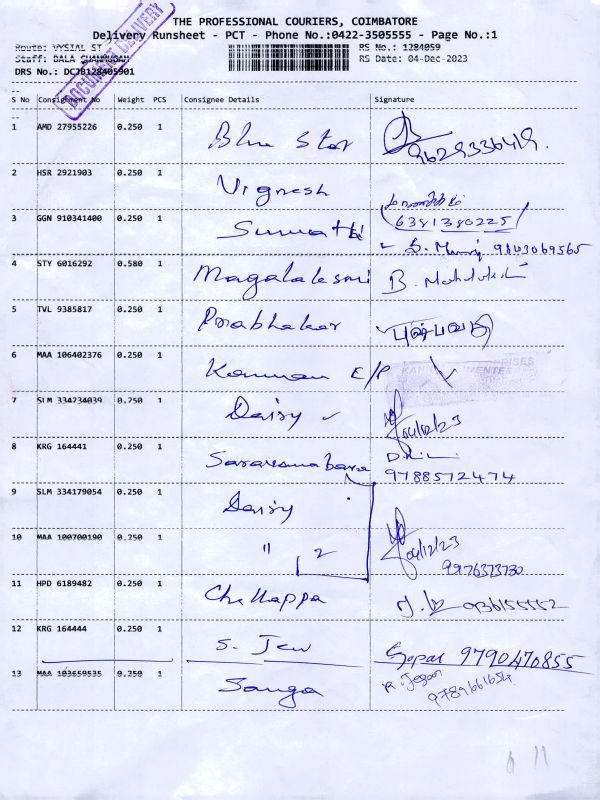 THE PROFESSIONAL COURIERS, COIMBATORE
Delivery Runsheet - PCT - Phone No.:0422-3505555 - Page No.:1
Route: VYSIAL ST
RS No.: 1284059
Staff: BALA
RS Date: 04-Dec-2023
DRS No.: DCJB128405901
DOCUMENT DELIVERY
S No Consignment No Weight PCS Consignee Details Signature
1 AMD 27955226 0.250 1 Blue Star 9629336419.
2 HSR 2921903 0.250 1 Vignesh
6381380225
3 GGN 910341400 0.250 1 Sumathi 9843069565
4 STY 6016292 0.580 1 Magalaksmi B.
5 TVL 9385817 0.250 1 Prabhakar
6 MAA 106402376 0.250 1 Kannan E/P
7 SLM 334234039 0.250 1 Daisy 04/12/23
8 KRG 164441 0.250 1
9788572474
9 SLM 334179054 0.250 1 Daisy
10 MAA 100700190 0.250 1 " 2 04/12/23
9976373730
11 HPD 6189482 0.250 1 Chellappa
12 KRG 164444 0.250 1 S. Jew Gopal 9790470855
13 MAA 103659535 0.250 1 Sanga R. Jegan
9789661654